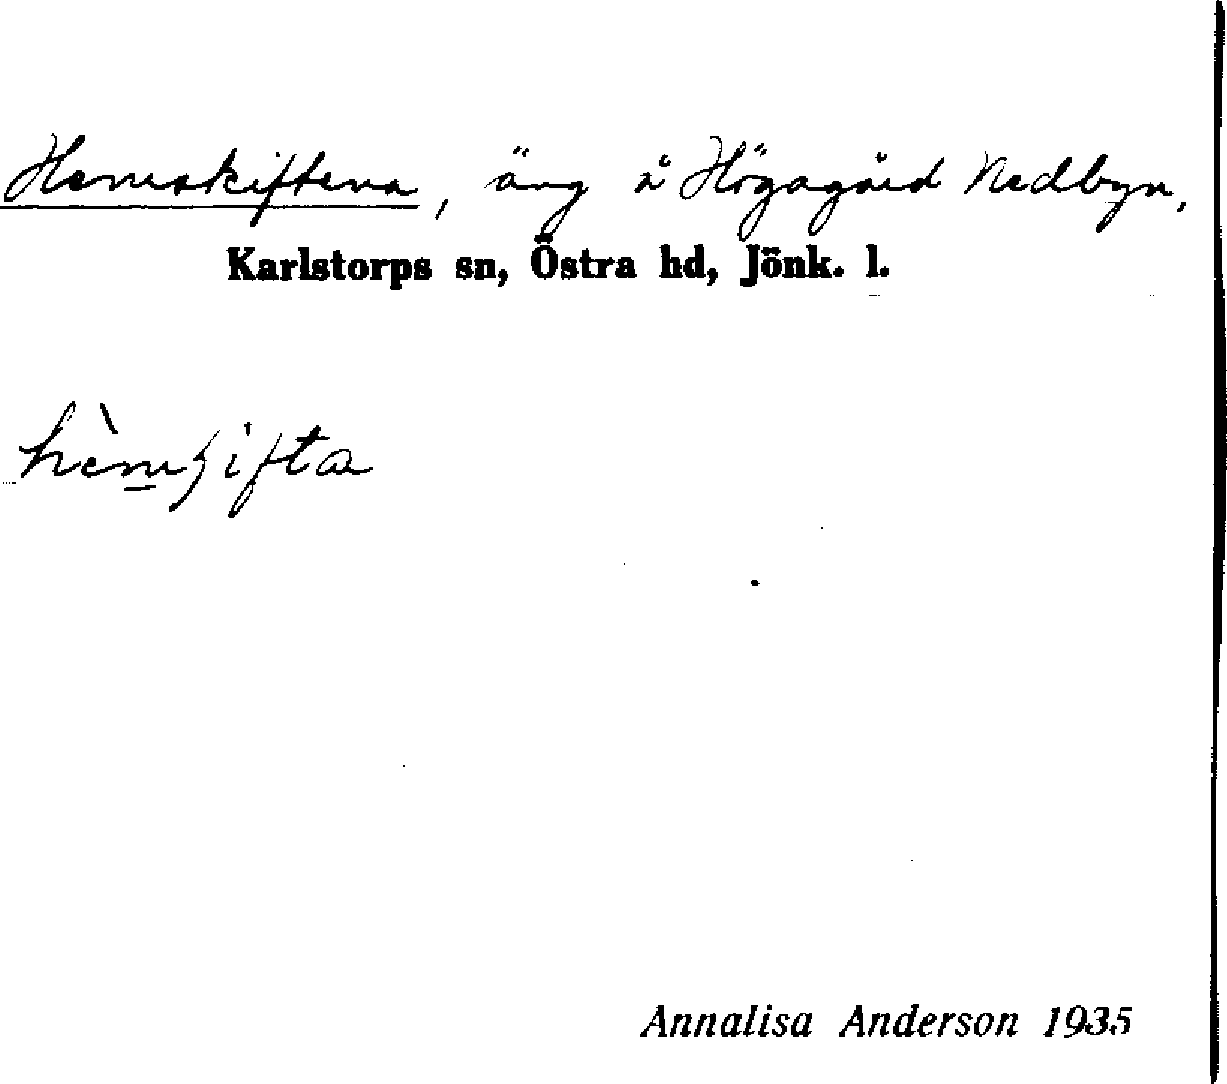 Hemskiftena, äng å Högagärd Nedbyn,
Karlstorps sn, Östra hd, Jönk. l.
Annalisa Anderson 1935